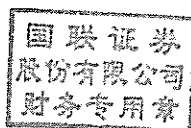 国联证券
股份有限公司
财务专用章